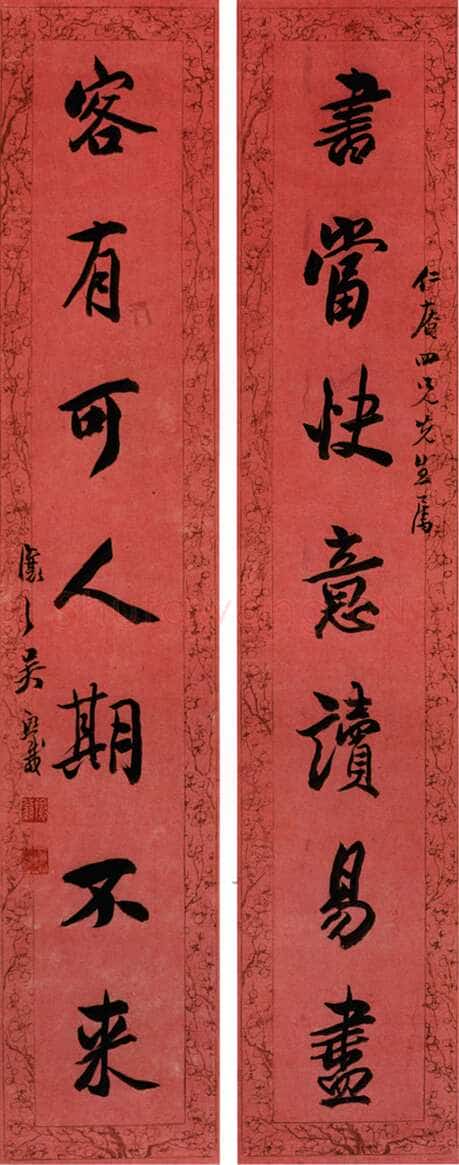 仁庵四兄先生属
書當快意讀易盡
客有可人期不来
讓之吴熙載